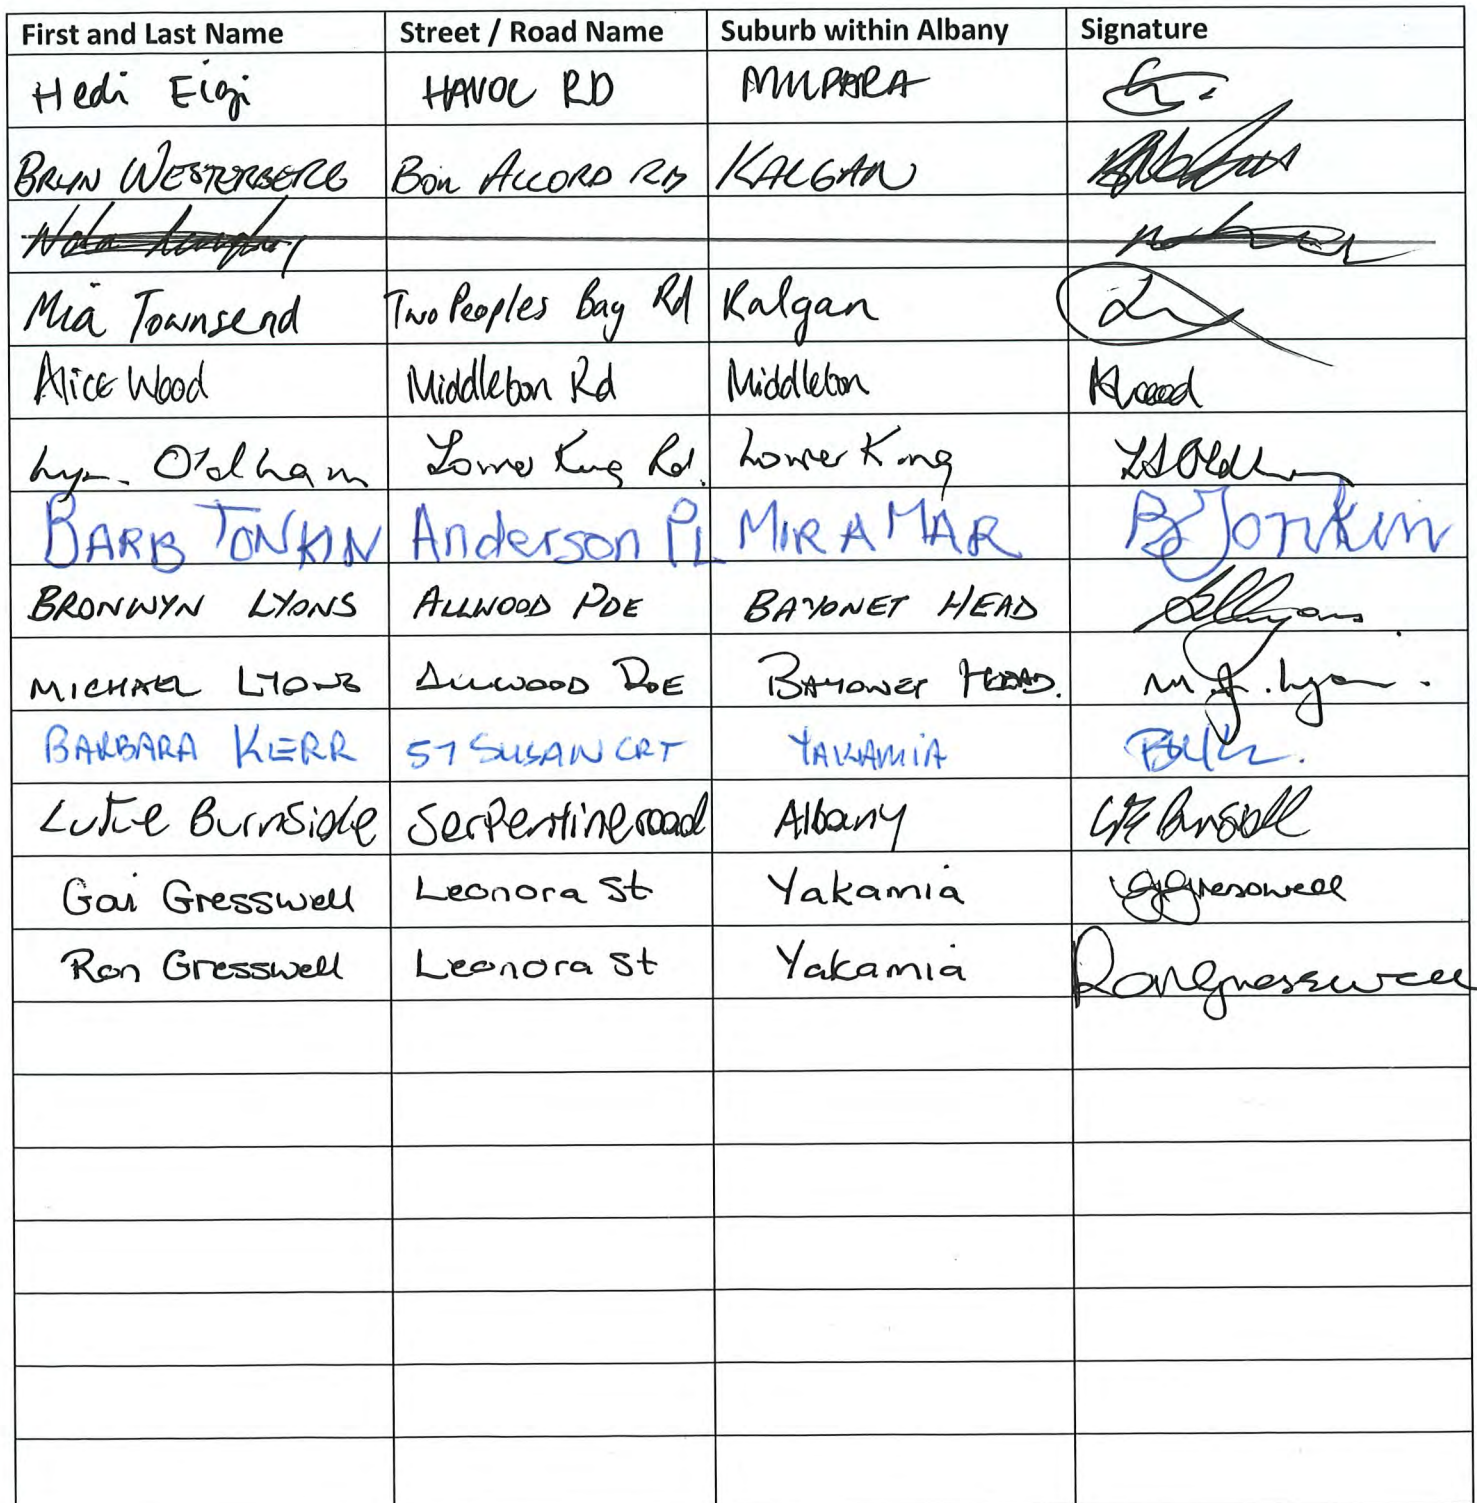 First and Last Name Street / Road Name Suburb within Albany Signature
Hedi Eigi HAVOC RD MULPARA
BRYN WESTERBERG Bon ACCORD RD KALGAN
Mia Townsend Two Peoples Bay Rd Kalgan
Alice Wood Middleton Rd Middleton AWood
Lyn Oldham Lower King Rd. Lower King
BARB TONKIN Anderson PL MIRA MAR B Tonkin
BRONWYN LYONS ALLWOOD PDE BAYONET HEAD
MICHAEL LYONS ALLWOOD PDE BAYONET HEAD. M J. Lyon.
BARBARA KERR 57 SUSAN CRT YAKAMIA
Burnside Serpentine road Albany
Gai Gresswell Leonora St Yakamia GGresswell
Ron Gresswell Leonora St Yakamia Ron Gresswell